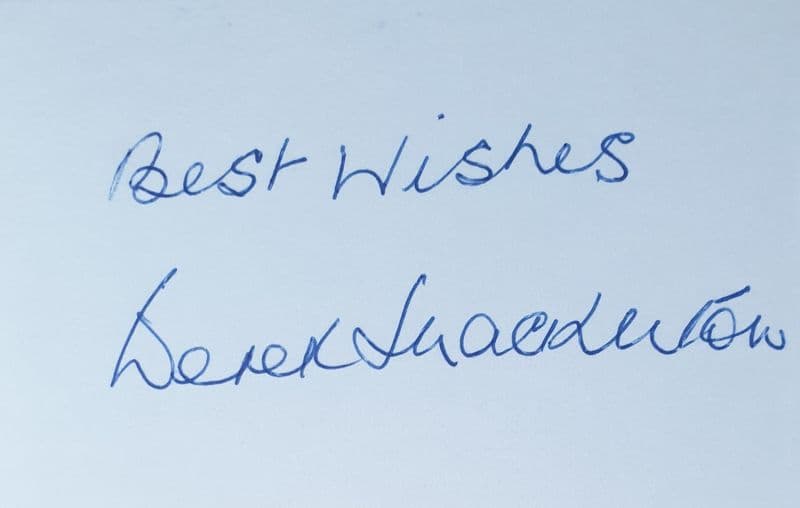 Best Wishes
Derek Shackleton